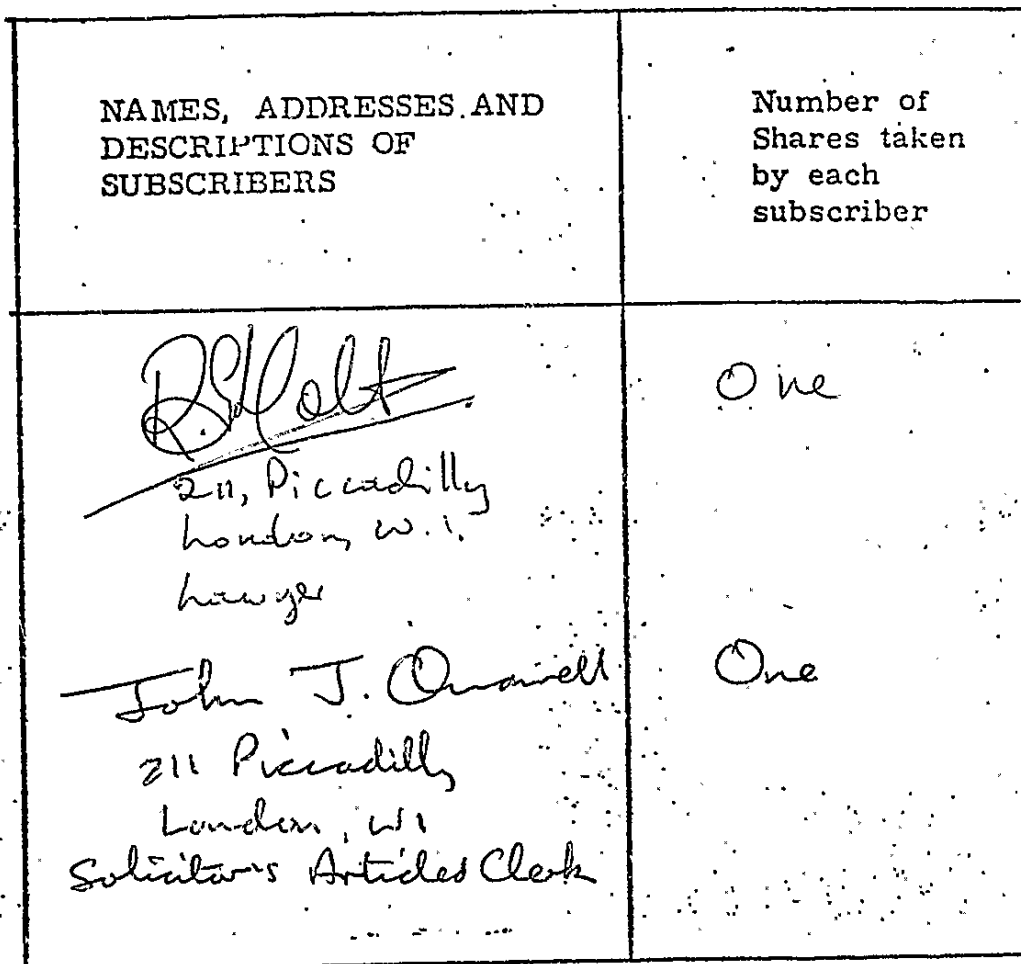 NAMES, ADDRESSES AND
DESCRIPTIONS OF
SUBSCRIBERS
Number of
Shares taken
by each
subscriber
One
211, Piccadilly
London, W.1.
Lawyer
John J.
One
211 Piccadilly
London, W1
Solicitor's Articled Clerk